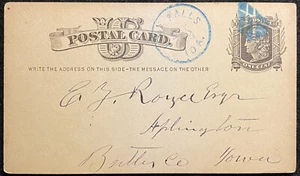 FALLS
IOA.
U S
POSTAL CARD.
WRITE THE ADDRESS ON THIS SIDE - THE MESSAGE ON THE OTHER
ONE CENT
E. J. Royce Esqr
Aplington
Butler Co Iowa